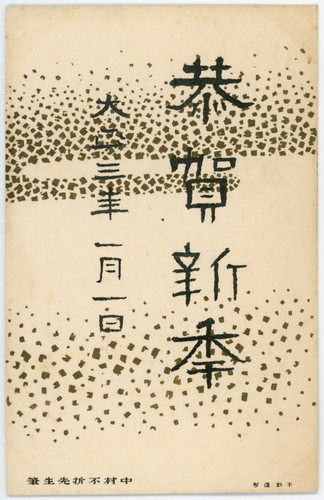 恭賀新秊
大正三年 一月一日
中村不折先生筆